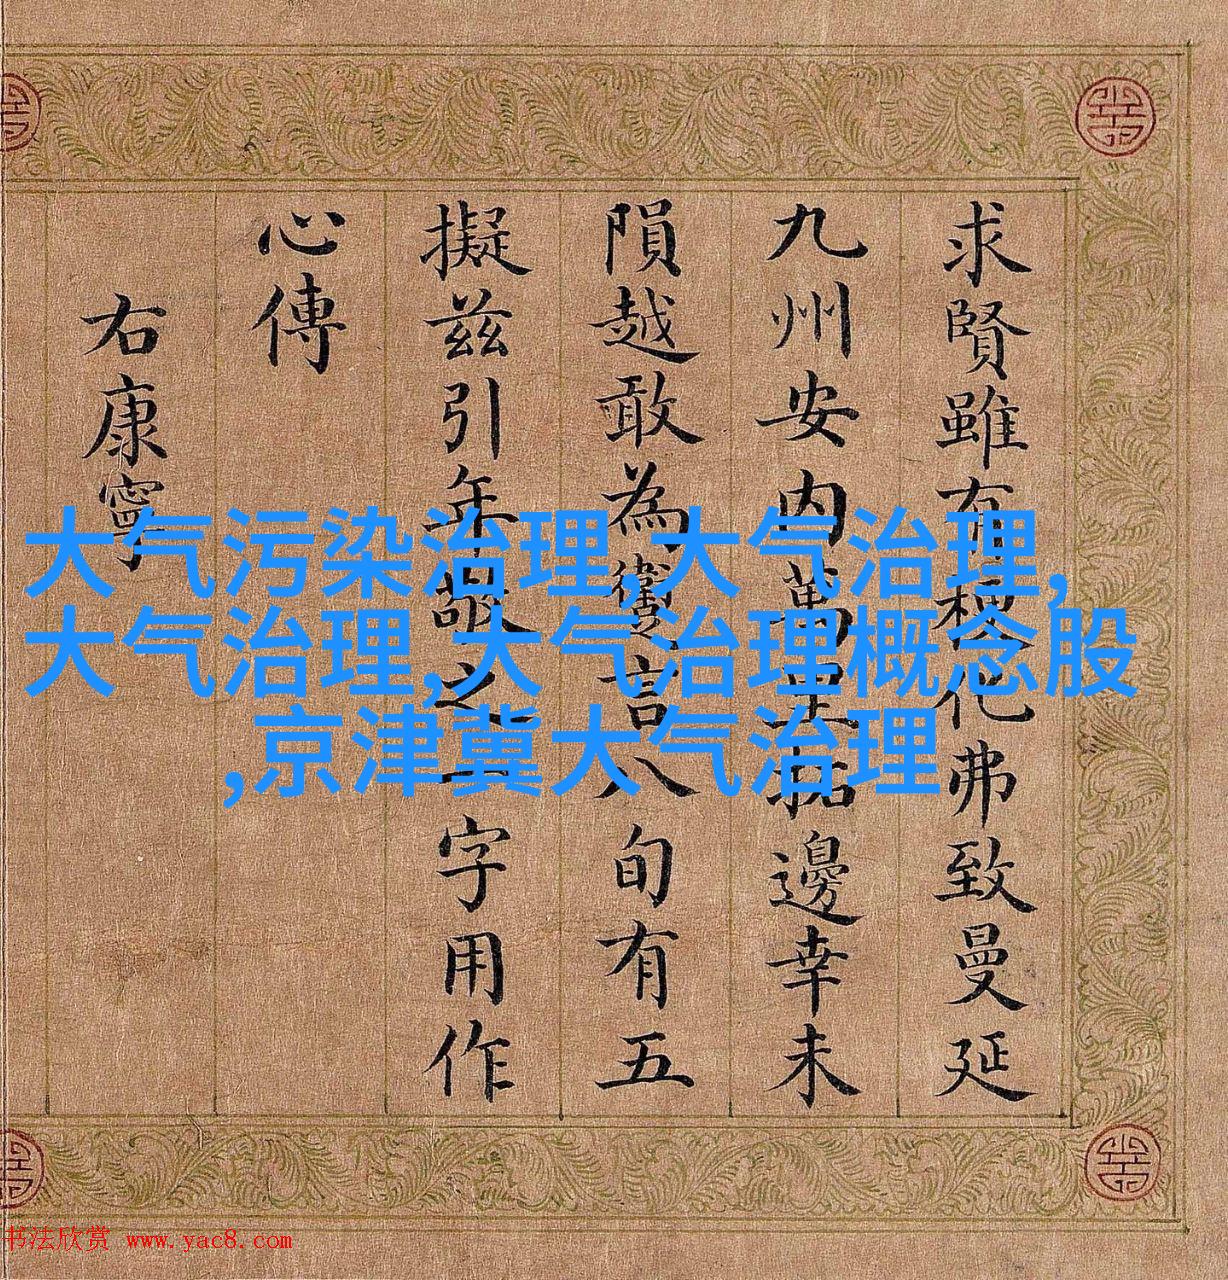 求賢雖有化弗致曼延
九州安内萬里拓邊幸未
隕越敢為言八旬有五
擬茲引年敬之一字用作
心傳
右康寧
大气污染治理,大气治理,
大气治理,大气治理概念股
,京津冀大气治理
书法欣赏 www.yac8.com